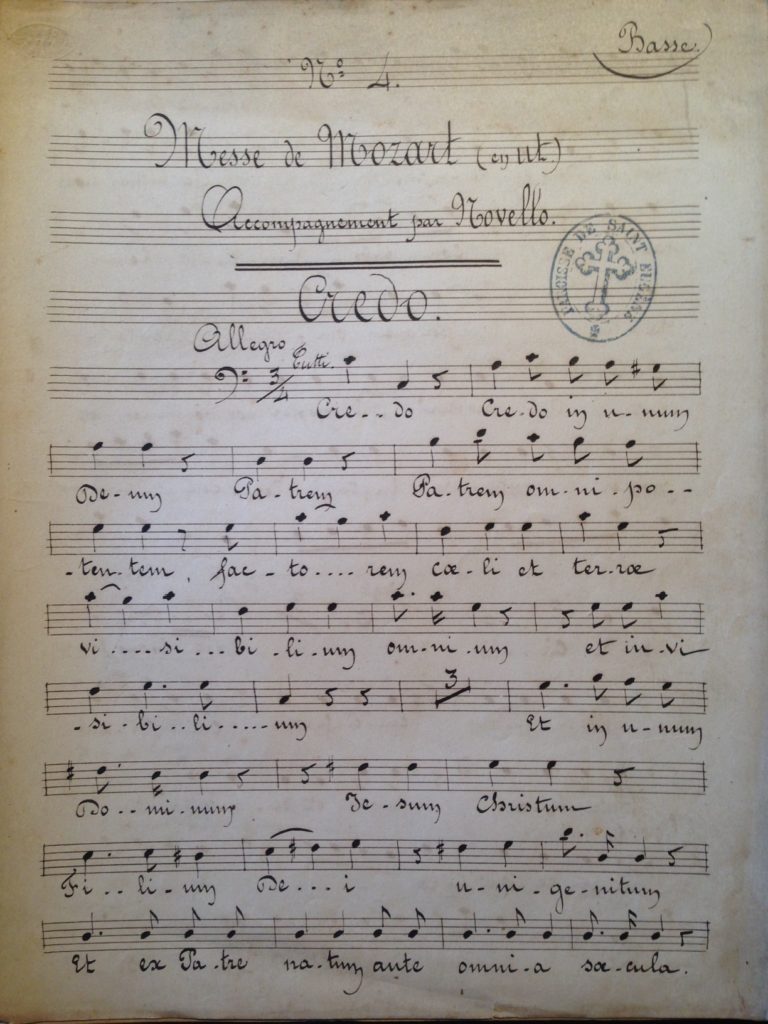 Basse.
Nº 4.
Messe de Mozart (en ut)
Accompagnement par Novello.
PAROISSE DE SAINT EUGÈNE
Credo.
Allegro
Tutti.
3/4
Cre--do Cre-do in u-num
De-um Pa-trem Pa-trem om-ni-po--
-ten-tem, fac-to....rem cœ-li et ter-ræ
vi....si...bi-li-um om-ni-um et in-vi
-si-bi..li.....um Et in u-num
3
Do-mi-num Je-sum Christum
Fi..li-um De...i u-ni-genitum
Et ex Pa-tre na-tum ante omni-a sæ-cula.